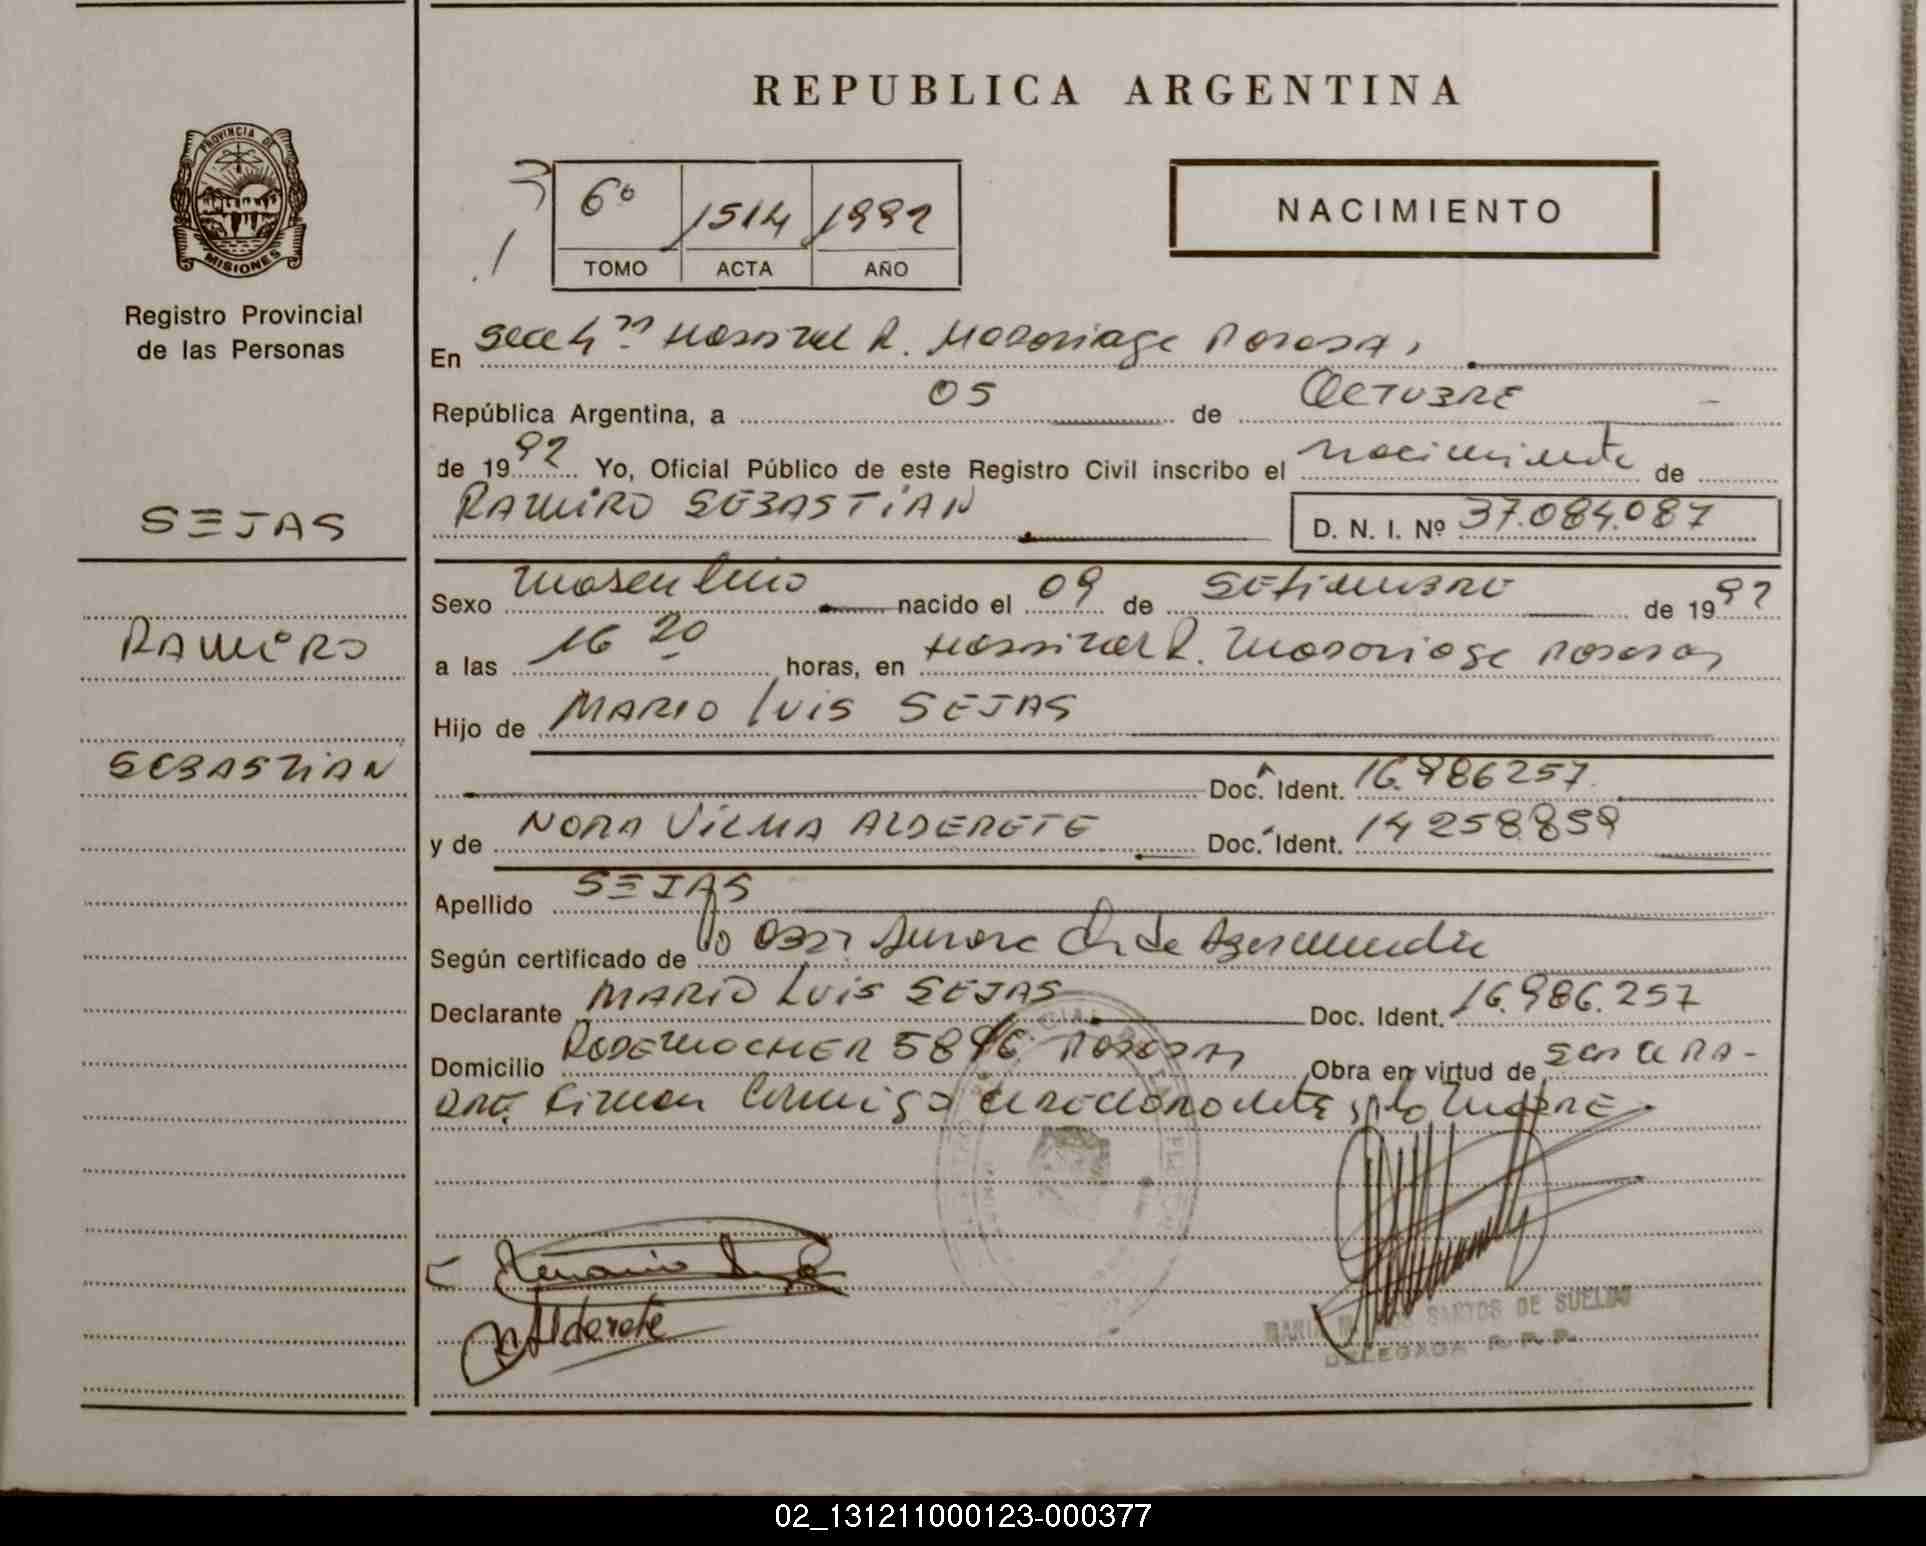 REPUBLICA ARGENTINA
PROVINCIA DE
MISIONES
Registro Provincial
de las Personas
6º 1514 1992
TOMO ACTA AÑO
NACIMIENTO
En Secc 4ª Hospital R. Madariaga Posadas
República Argentina, a 05 de OCTUBRE
de 1992 Yo, Oficial Público de este Registro Civil inscribo el nacimiento de
RAMIRO SEBASTIAN
D. N. I. Nº 37.084.087
SEJAS
RAMIRO
SEBASTIAN
Sexo masculino nacido el 09 de SETIEMBRE de 1992
a las 16 20 horas, en Hospital R. Madariaga Posadas
Hijo de MARIO LUIS SEJAS
Doc. Ident. 16.986257
y de NORA VILMA ALDERETE Doc. Ident. 14258859
Apellido SEJAS
Según certificado de Obst. Aurora Ch de
Declarante MARIO LUIS SEJAS Doc. Ident. 16.986.257
Domicilio RADEMACHER 5846 POSADAS Obra en virtud de ser el PA-
DRE. Firman Conmigo el Declarante y la MADRE
N Alderete
SANTOS DE SUELDO
DELEGADA R. P. P.
02_131211000123-000377